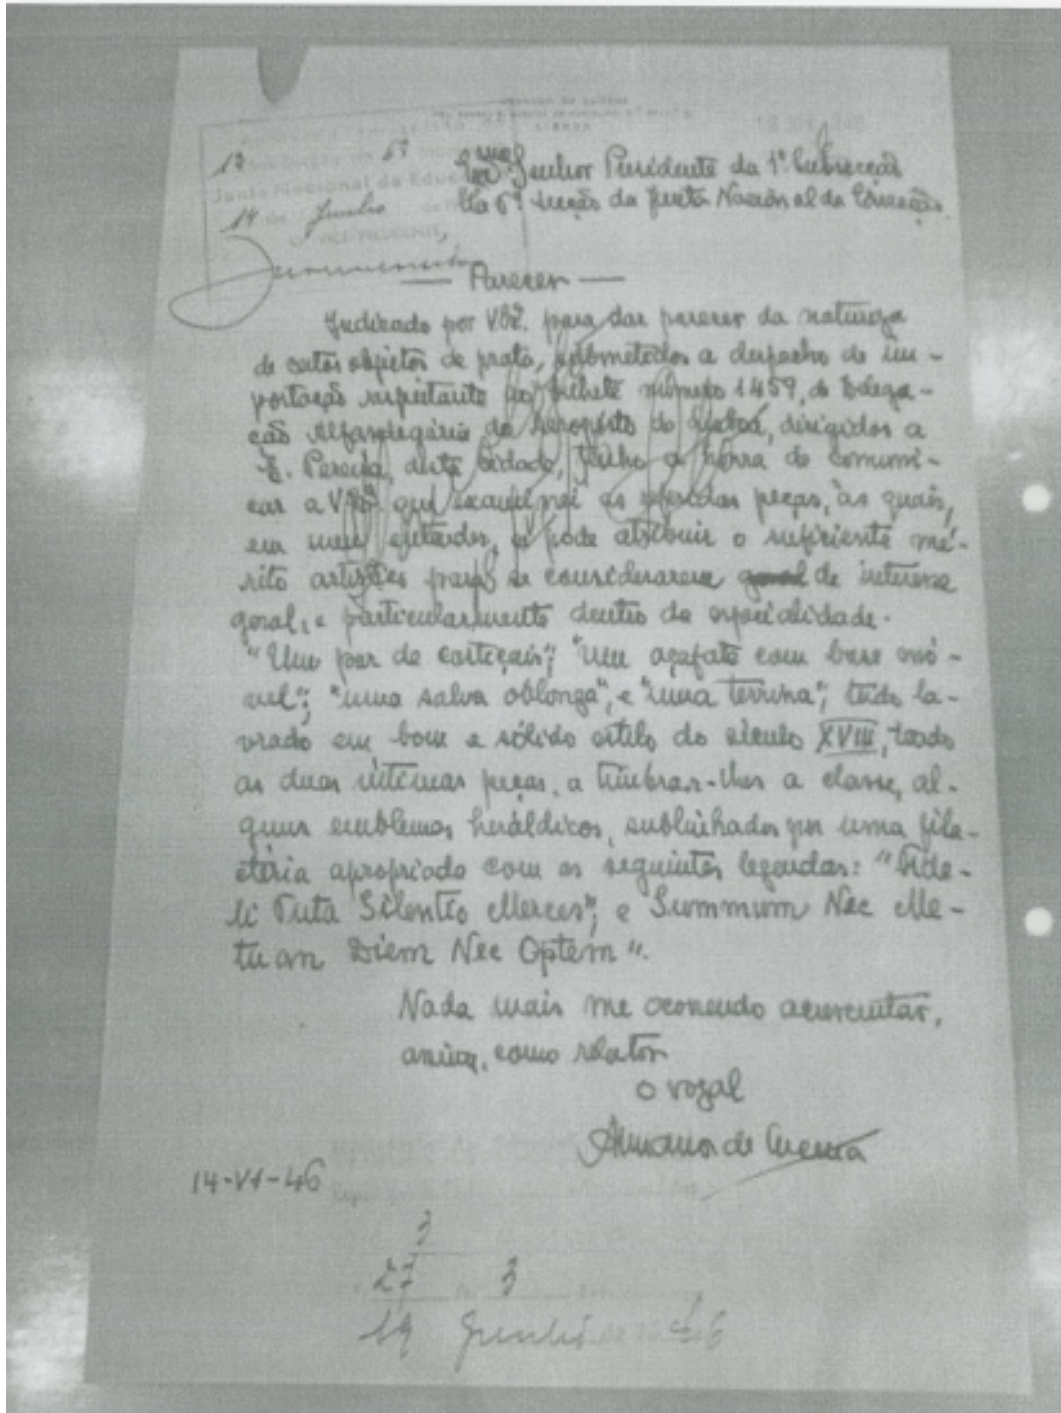 12 6ª
Junta Nacional da Educação
14 de Junho de
VICE-PRESIDENTE,
Exmo Senhor Presidente da 1ª Subsecção
da 6ª Secção da Junta Nacional da Educação.
— Parecer —
Indicado por V.Exª. para dar parecer da natureza
de certos objetos de prata, submetidos a despacho de im-
portação respeitante ao bilhete número 1459, da Delega-
ção Alfandegária do Aeroporto de Lisboa, dirigidos a
E. Pereira, desta cidade, tenho a honra de comuni-
car a V.Exª que examinei as referidas peças, às quais,
em meu entender, se pode atribuir o suficiente mé-
rito artístico para se considerarem geral de interesse
geral, e particularmente dentro da especialidade.
"Um par de castiçais"; "um açafate com base mó-
vel"; "uma salva oblonga", e "uma terrina"; tudo la-
vrado em bom e sólido estilo do século XVIII, tendo
as duas últimas peças, a timbrar-lhes a classe, al-
guns emblemas heráldicos, sublinhados por uma fila-
téria apropriada com as seguintes legendas: "Fide-
li Tuta Silentio Merces"; e Summum Nec Me-
tuam Diem Nec Optem".
Nada mais me ocorrendo acrescentar,
assina, como relator
O vogal
14-VI-46
3
27 3
19 Junho 46